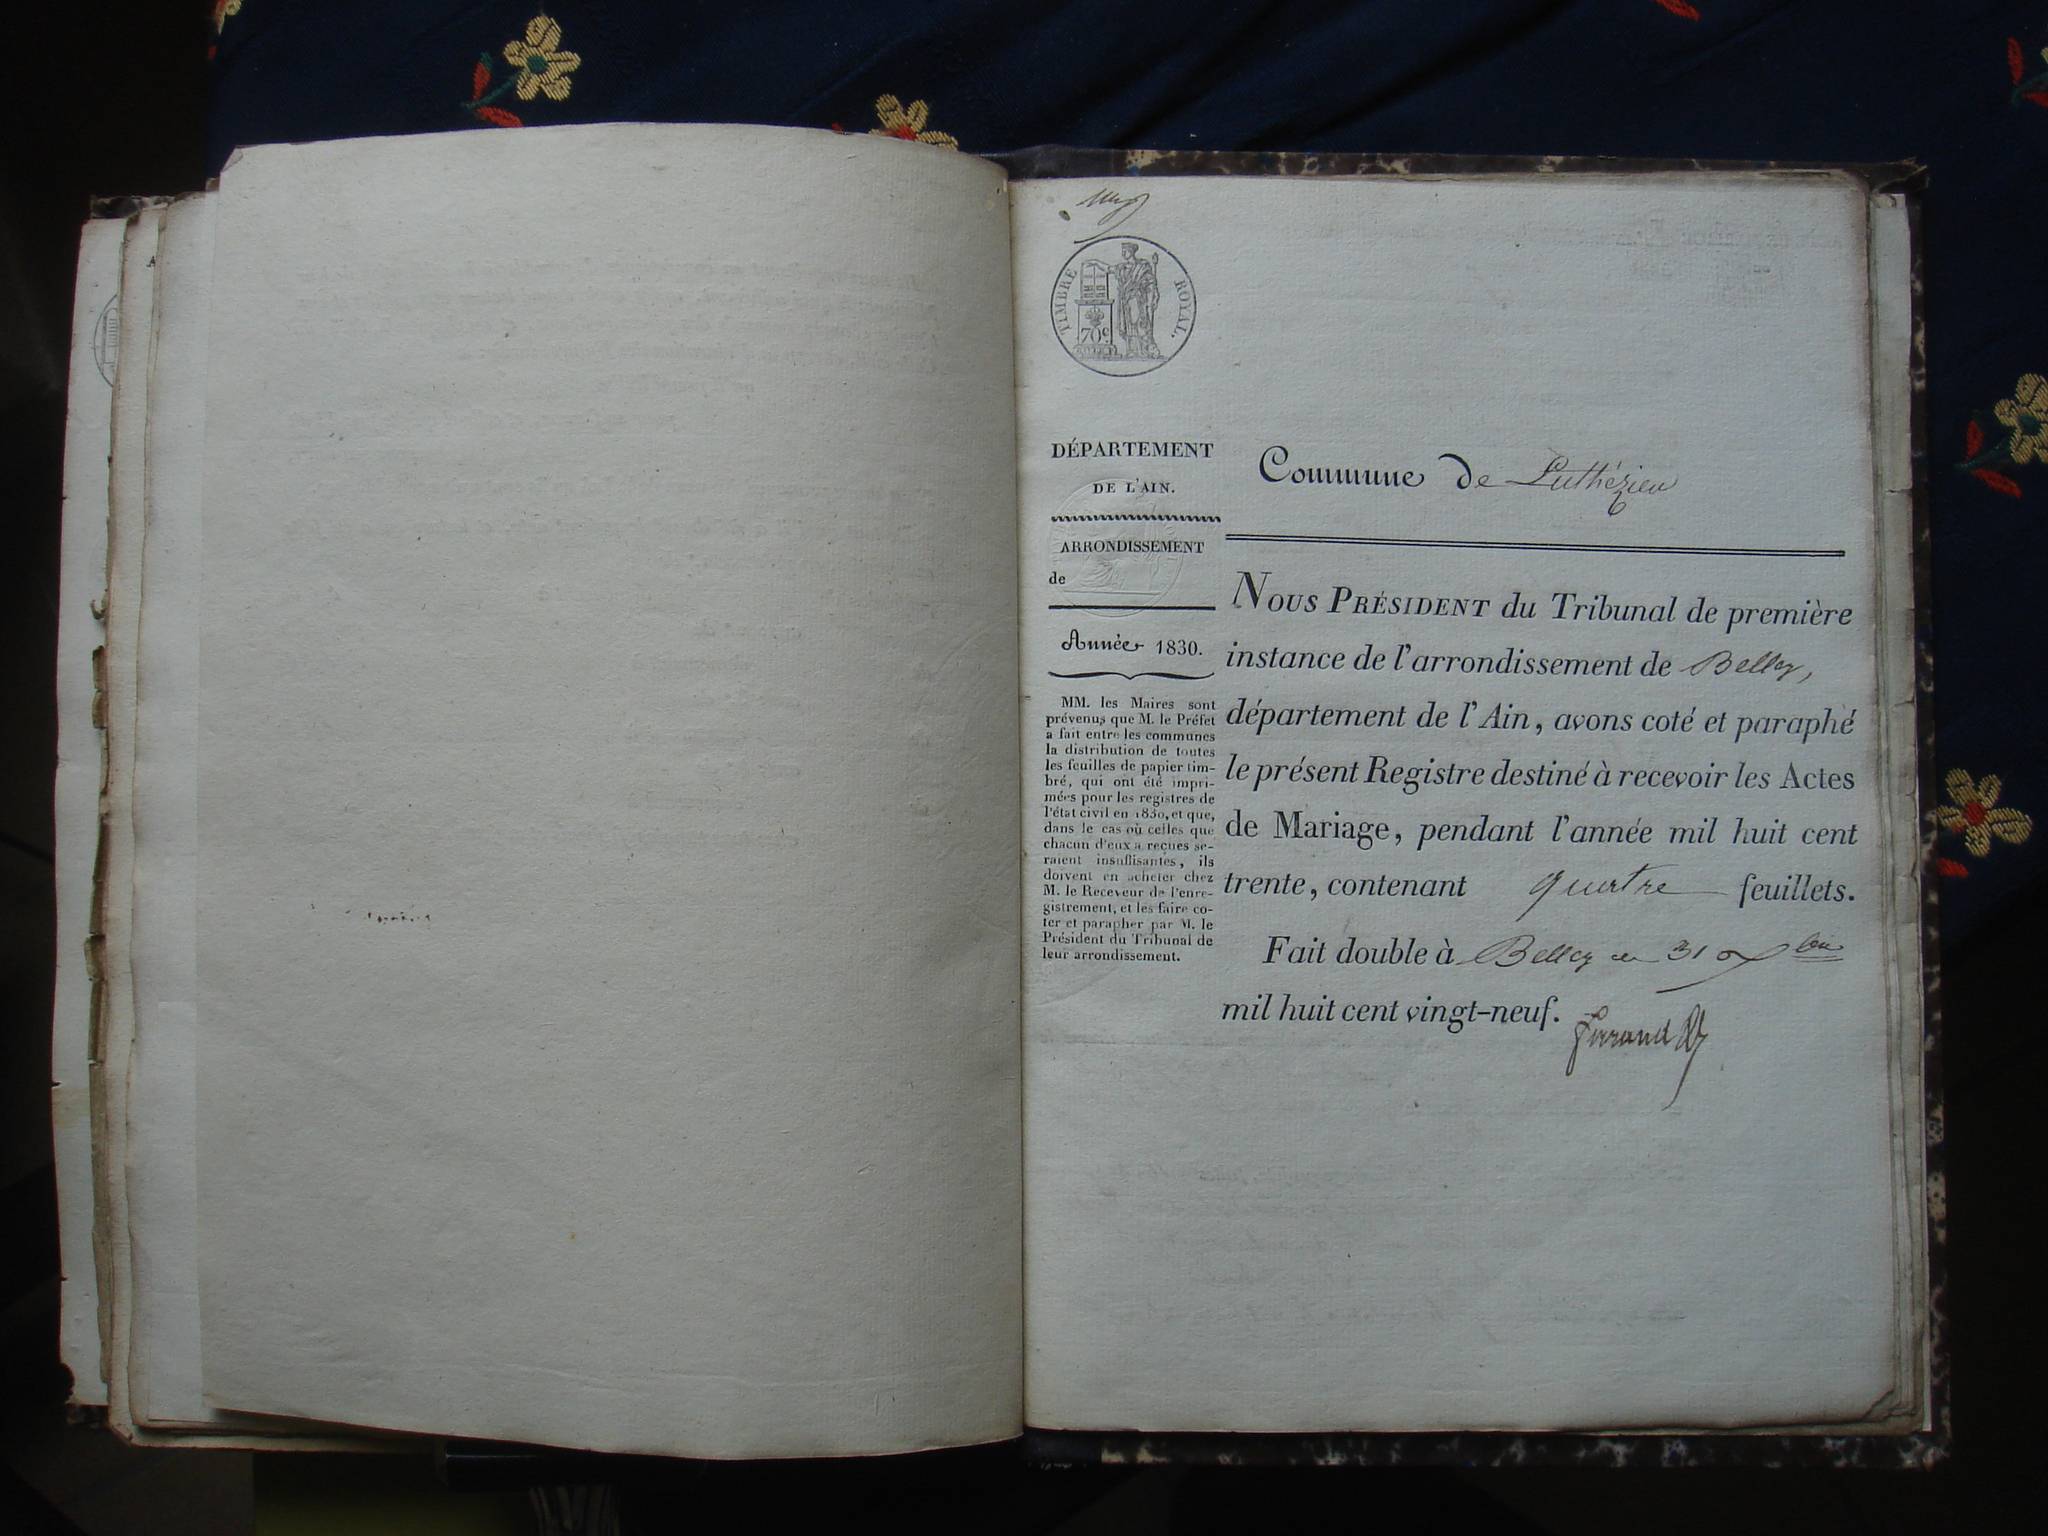 TIMBRE ROYAL.
70c
DÉPARTEMENT
DE L'AIN.
ARRONDISSEMENT
de
Année 1830.
MM. les Maires sont
prévenus que M. le Préfet
a fait entre les communes
la distribution de toutes
les feuilles de papier tim-
bré, qui ont été impri-
mées pour les registres de
l'état civil en 1830, et que,
dans le cas où celles que
chacun d'eux a reçues se-
raient insuffisantes, ils
doivent en acheter chez
M. le Receveur de l'enre-
gistrement, et les faire co-
ter et parapher par M. le
Président du Tribunal de
leur arrondissement.
Commune de Luthézieu
NOUS PRÉSIDENT du Tribunal de première
instance de l'arrondissement de Belley,
département de l'Ain, avons coté et paraphé
le présent Registre destiné à recevoir les Actes
de Mariage, pendant l'année mil huit cent
trente, contenant quatre feuillets.
Fait double à Belley ce 31 Xbre
mil huit cent vingt-neuf.